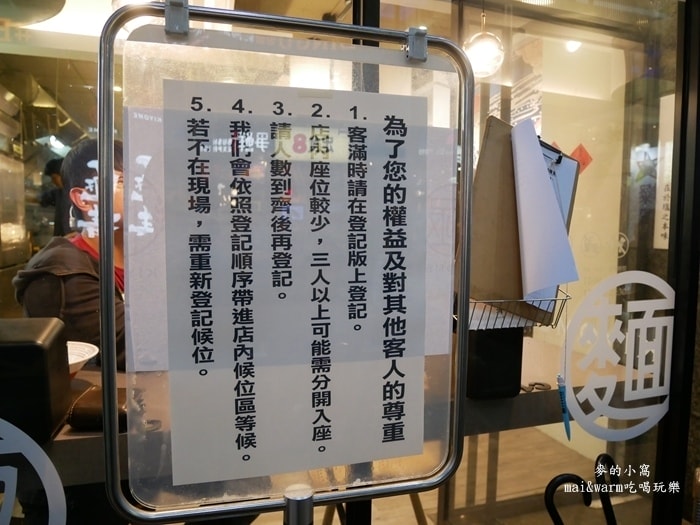 為了您的權益及對其他客人的尊重
1. 客滿時請在登記版上登記。
2. 店內座位較少，三人以上可能需分開入座。
3. 請人數到齊後再登記。
4. 我們會依照登記順序帶進店內候位區等候。
5. 若不在現場，需重新登記候位。
麵
麥的小窩
mai&warm吃喝玩樂